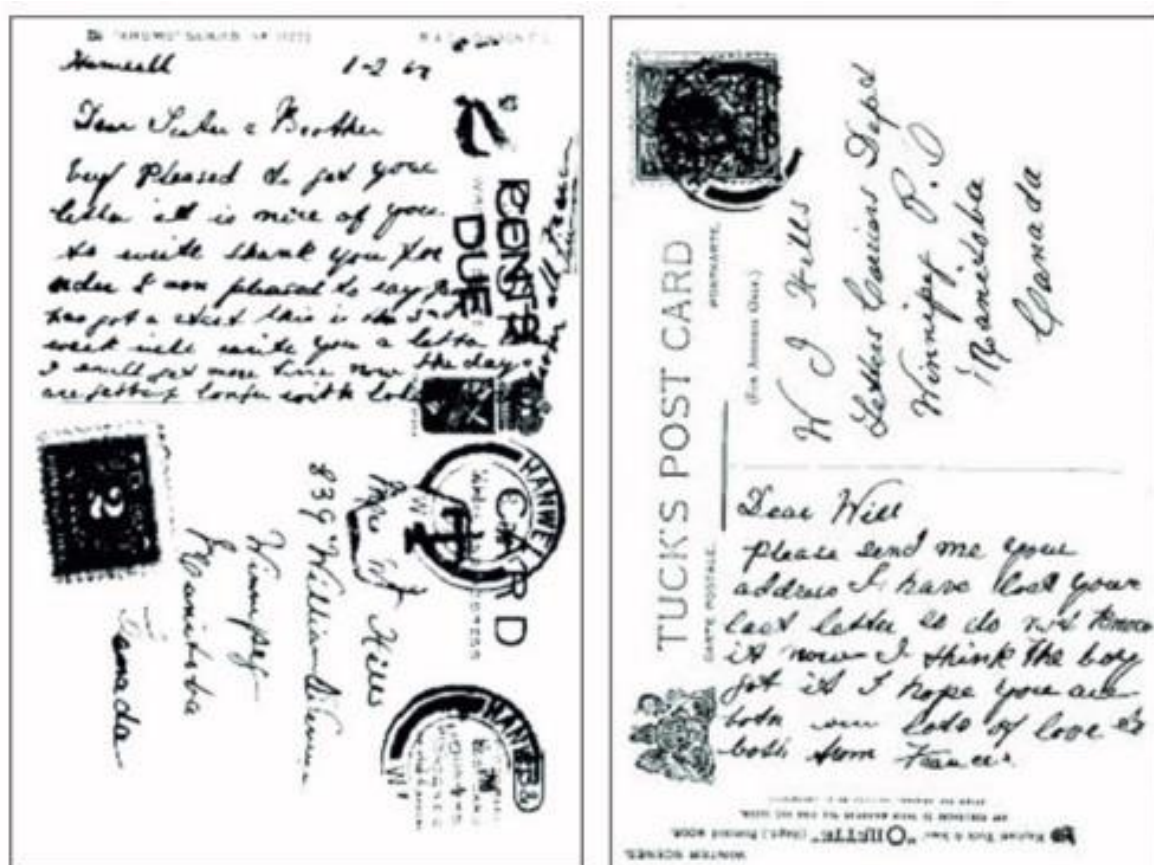 1-2
Dear Sister & Brother
very Pleased to get your
letter it is nice of you
to write thank you for
order I am pleased to say
has got a start this is the 3rd
week will write you a letter
I shall get more time now the days
are getting longer with love
CENTS
DUE
CARD
HANWELL
HANWELL
2
Mrs W J Hills
839 William Avenue
Winnipeg
Manitoba
Canada
TUCK'S POST CARD
CARTE POSTALE.
POSTKARTE.
(For Address Only.)
W J Hills
Letter Carriers Dept
Winnipeg P.O
Manitoba
Canada
Dear Will
please send me your
address I have lost your
last letter so do not know
it now I think the boy
got it I hope you are
both well lots of love to
both from
"OILETTE"
WINTER SCENES.